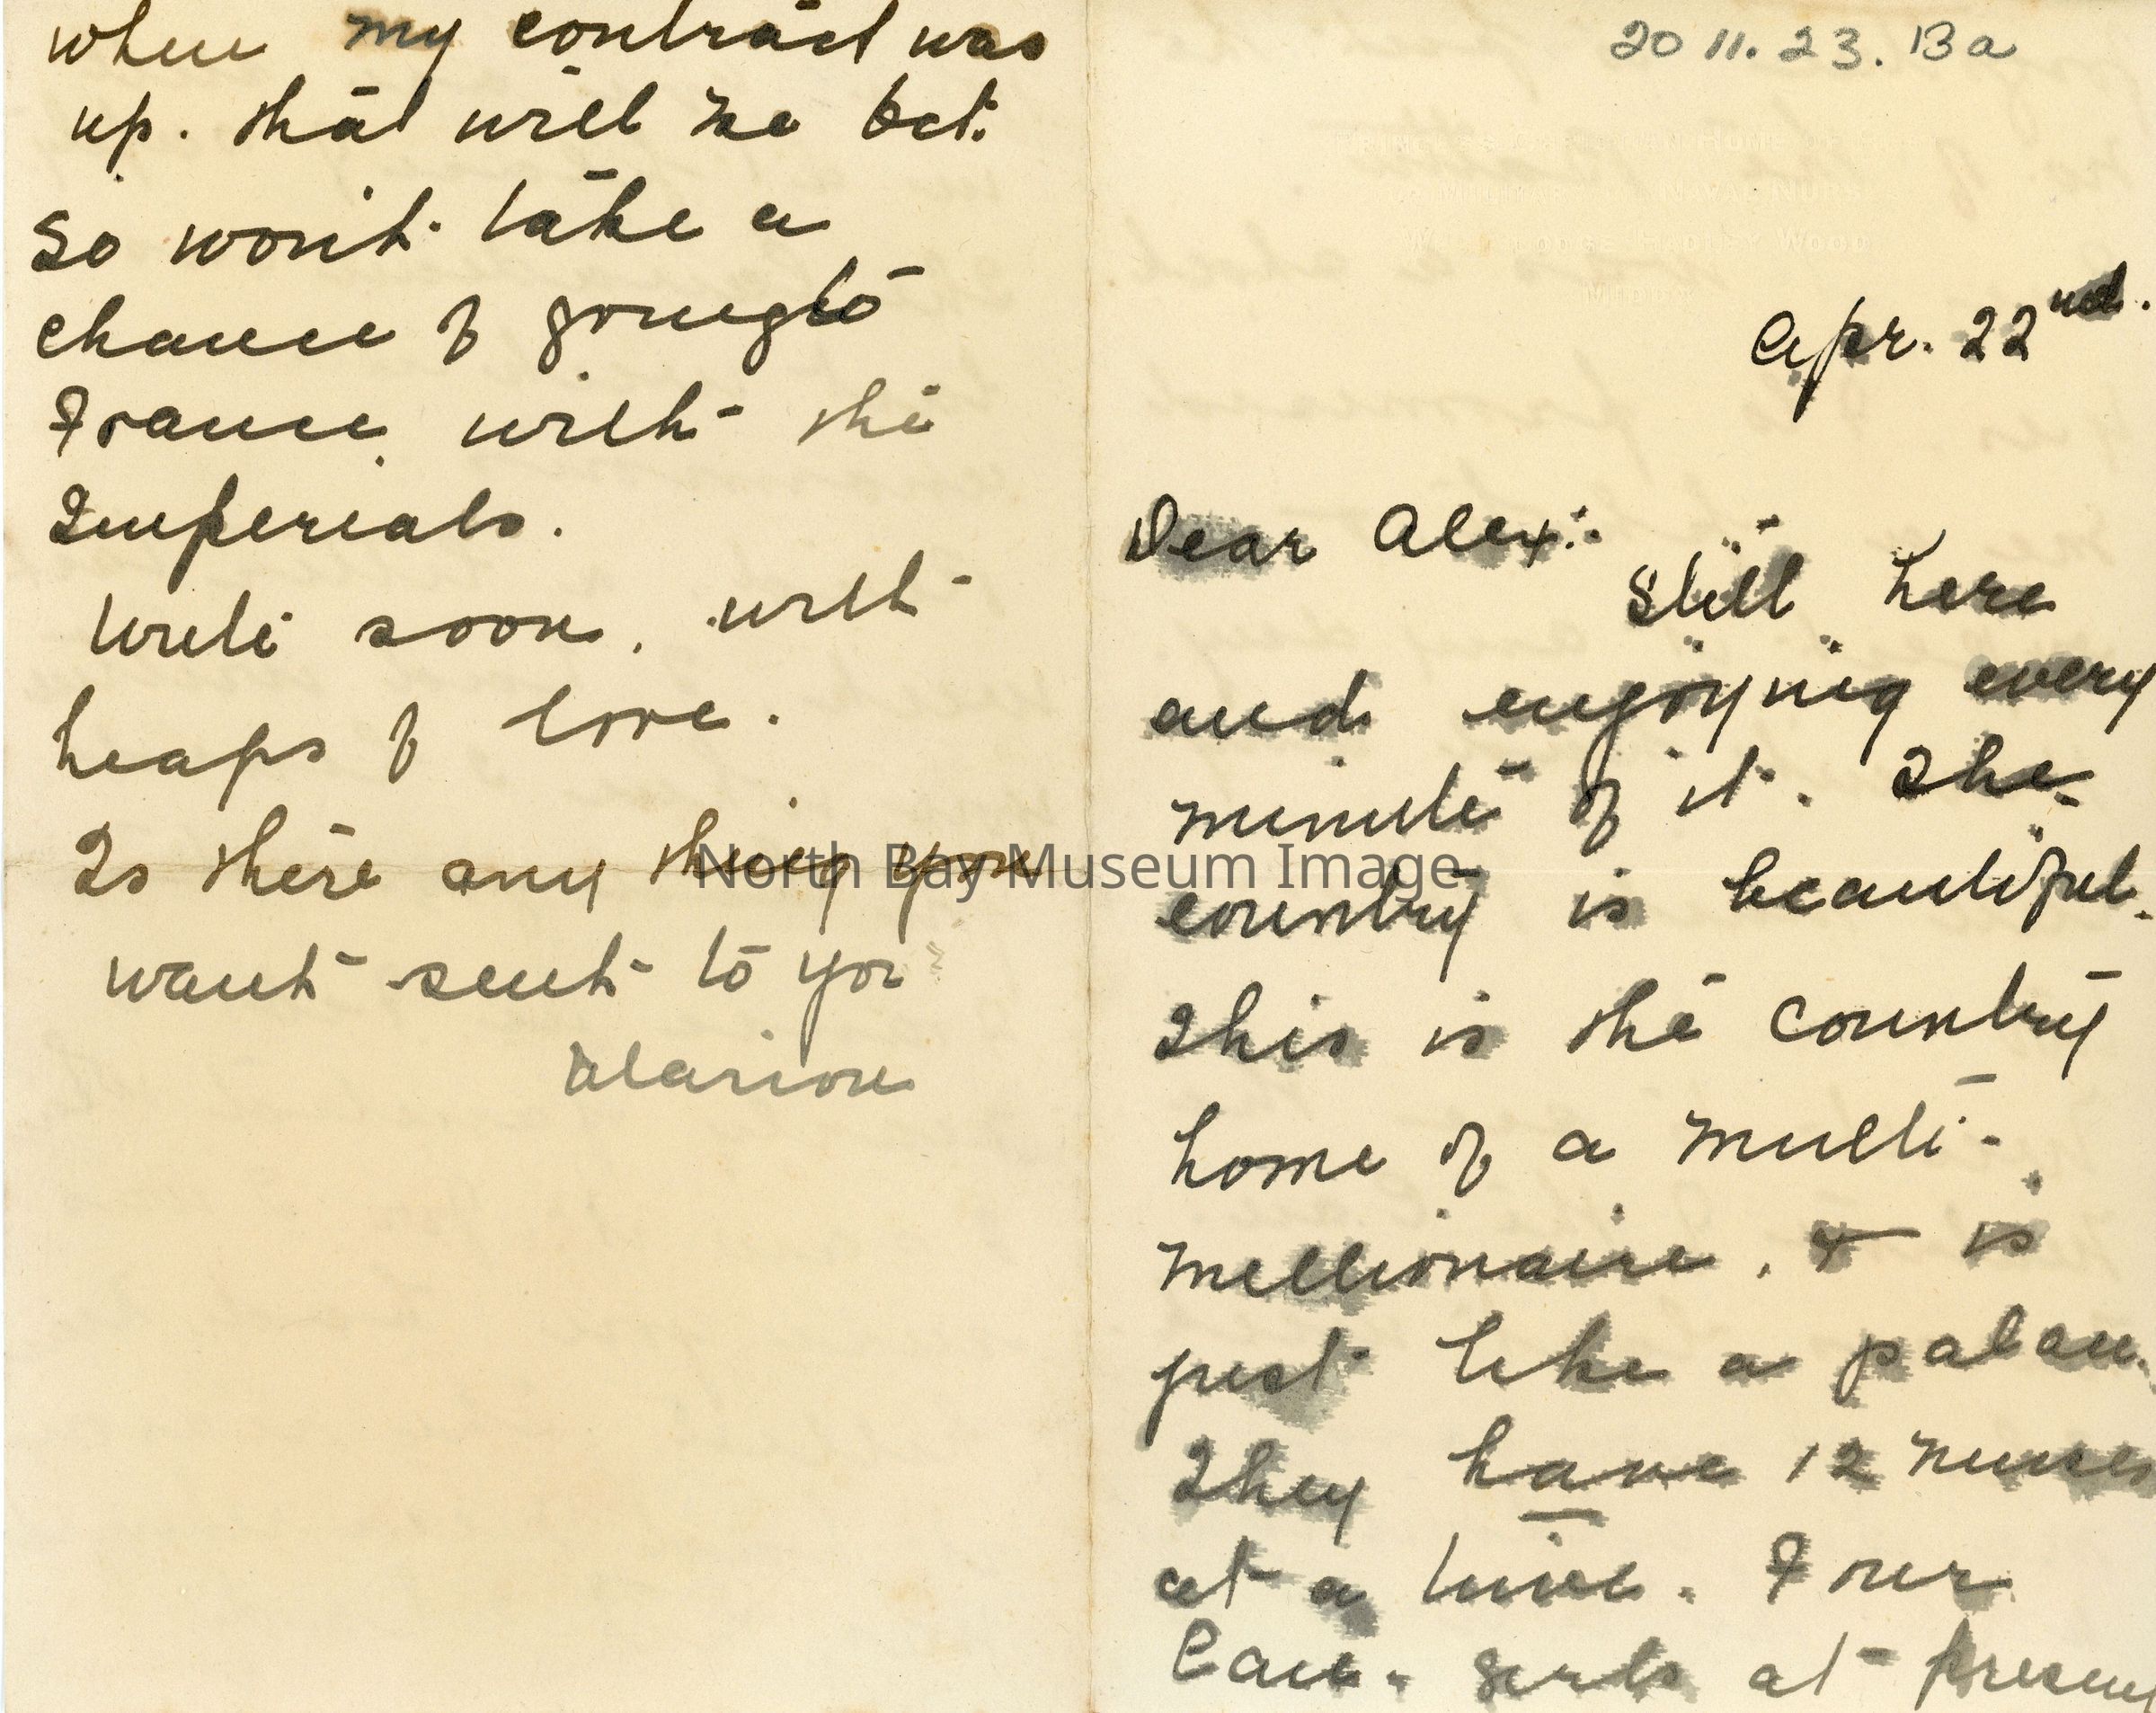 20 11. 23. Ba
PRINCESS CHRISTIAN HOME OF REST
MILITARY AND NAVAL NURSES
LODGE, HADLEY WOOD
Apr. 22nd.
Dear Alex:-
Still here
and enjoying every
minute of it. The
country is beautiful.
This is the country
home of a multi-
millionaire, & is
just like a palace.
They have 12 nurses
at a time. Four
Can. girls at present
when my contract was
up. that will be Oct.
So won't take a
chance of going to
France with the
Imperials.
Write soon, with
heaps of love.
Is there any thing you
want sent to you
Marion
North Bay Museum Image